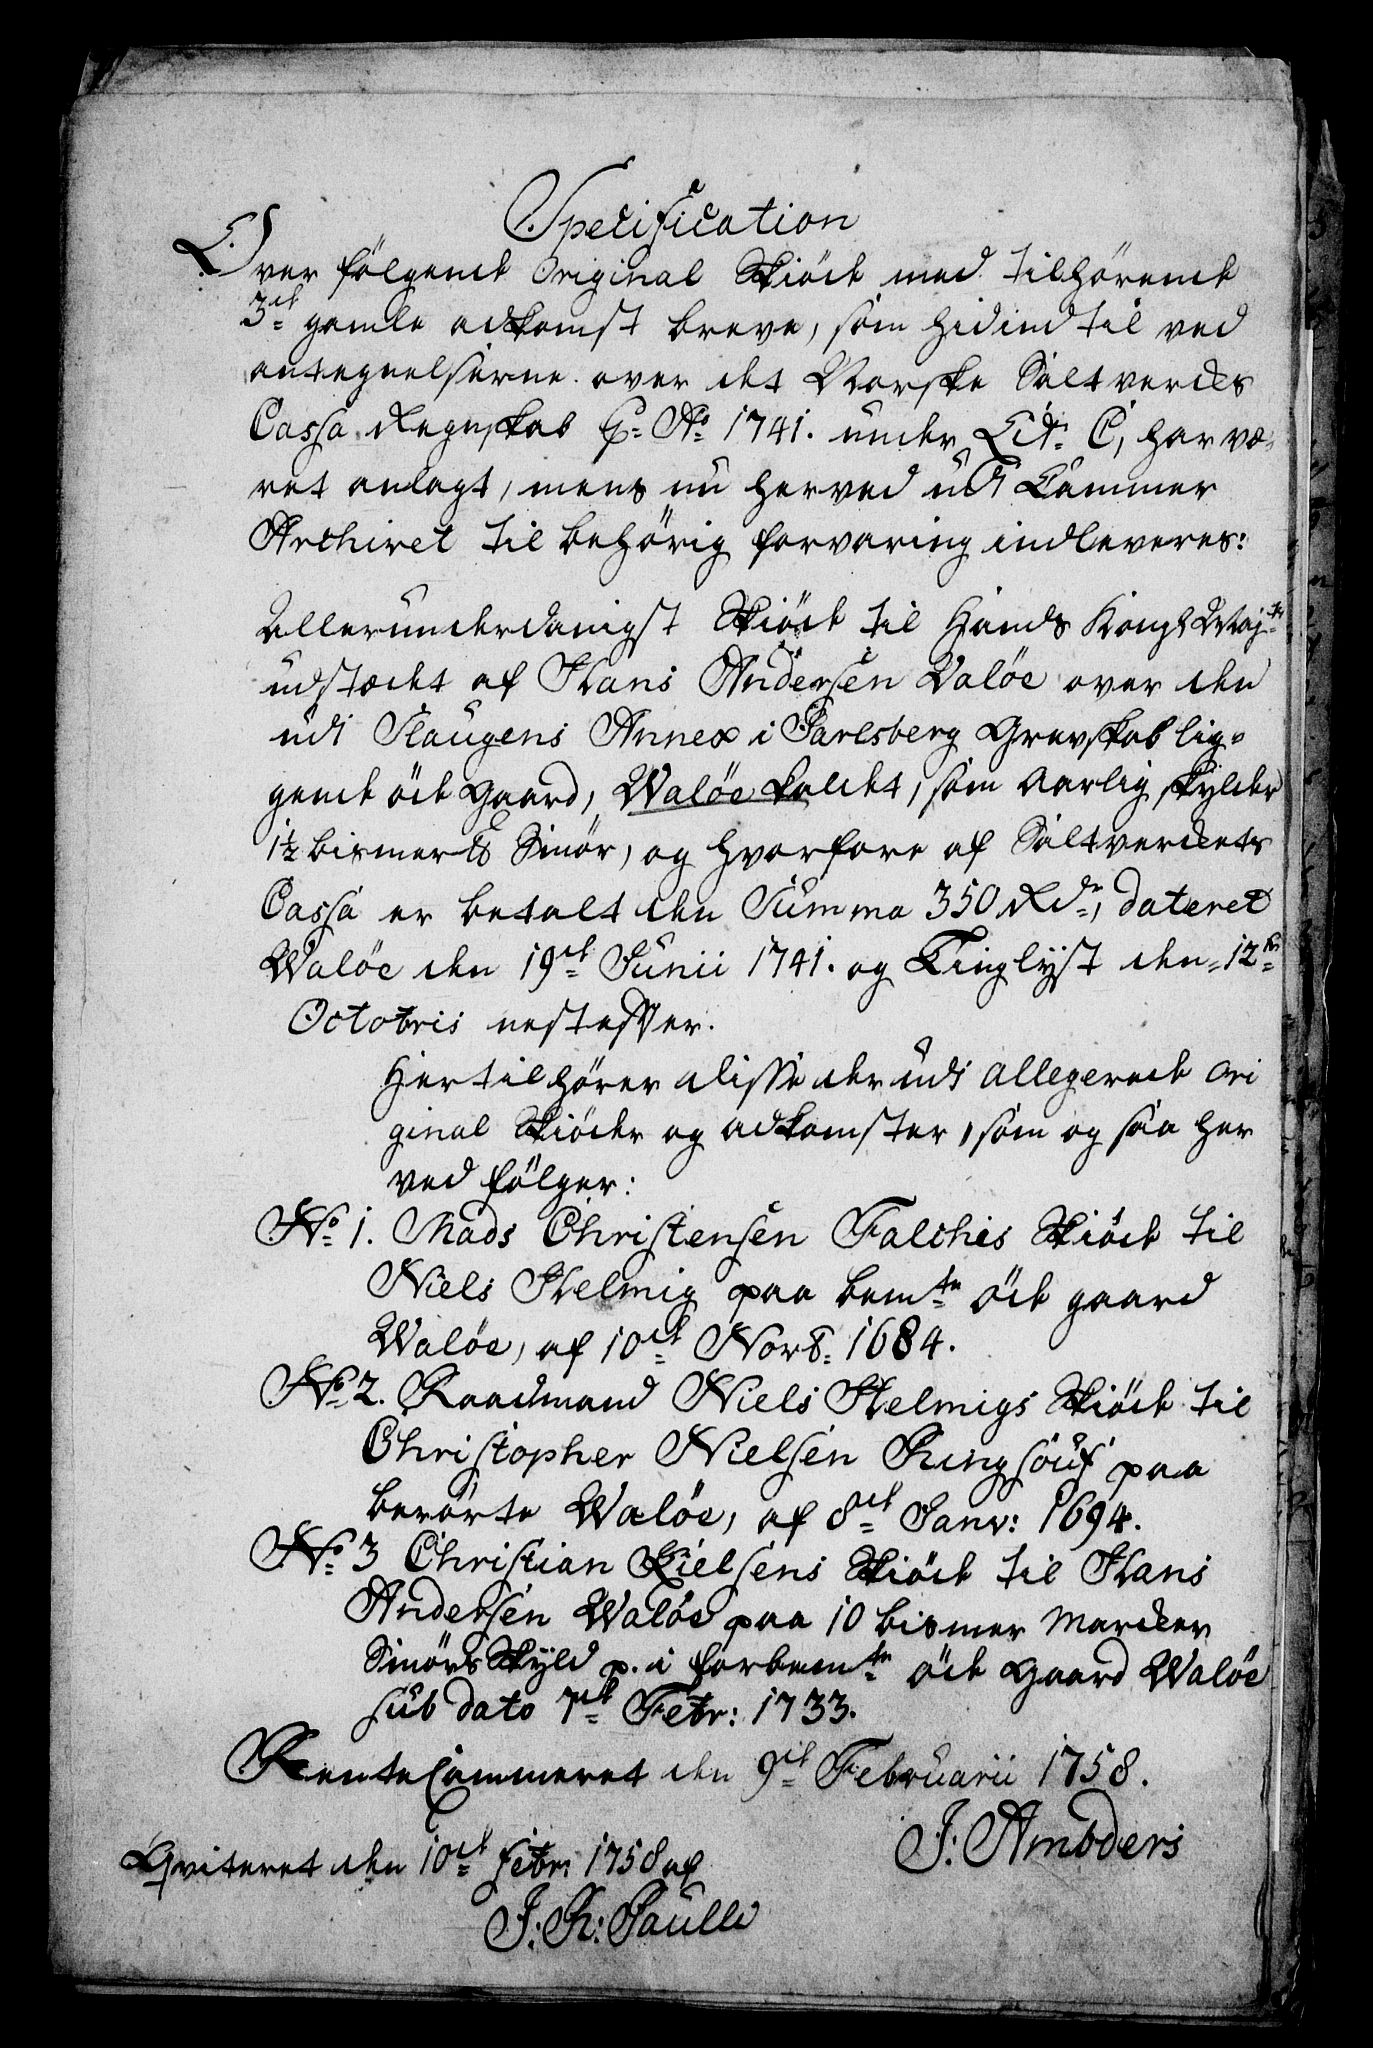 Specification
Over fölgende Original Skiöde med tilhörende
3de gamle adkomst breve, som hidindtil ved
antegnelserne over det Norske Saltverckes
Cassa Regnskab p. Ao. 1741. under Lit. C, har væ-
ret anlagt, mens nu herved udi Cammer
Archivet til behörig forvaring indleveres:
Allerunderdanigst Skiöde til Hands Kongl. Mayts.
udstædt af Hans Andersen Valöe over den
udi Slaugens Annex i Jarlsberg Grevskab lig-
gende öde Gaard, Walöe kaldet, som Aarlig skylder
1½ bismer ℔ Smör, og hvorfore af Saltverckets
Cassa er betalt den Summa 350 Rdr., dateret
Walöe den 19de Junii 1741. og Tinglyst den 12te
Octobris nestefter.
Hertil hörer disse der udi allegerede Ori
ginal Skiöder og adkomster, som og saa her
ved fölger:
No. 1. Mads Christensen Falchis Skiöde til
Niels Helmig paa bemte. öde gaard
Walöe, af 10de Novb. 1684.
No. 2. Raadmand Niels Helmigs Skiöde til
Christopher Nielsen Ringsouf paa
berörte Walöe, af 8de Janv: 1694.
No. 3 Christian Kielsens Skiöde til Hans
Andersen Walöe paa 10 bismer Marcker
Smörs Skyld p. i forbemte. öde Gaard Walöe
sub dato 7de Febr: 1733.
RenteCammeret den 9de Februarii 1758.
J. Amböders
Qviteret den 10de Febr: 1758 af
J: R: Paulli